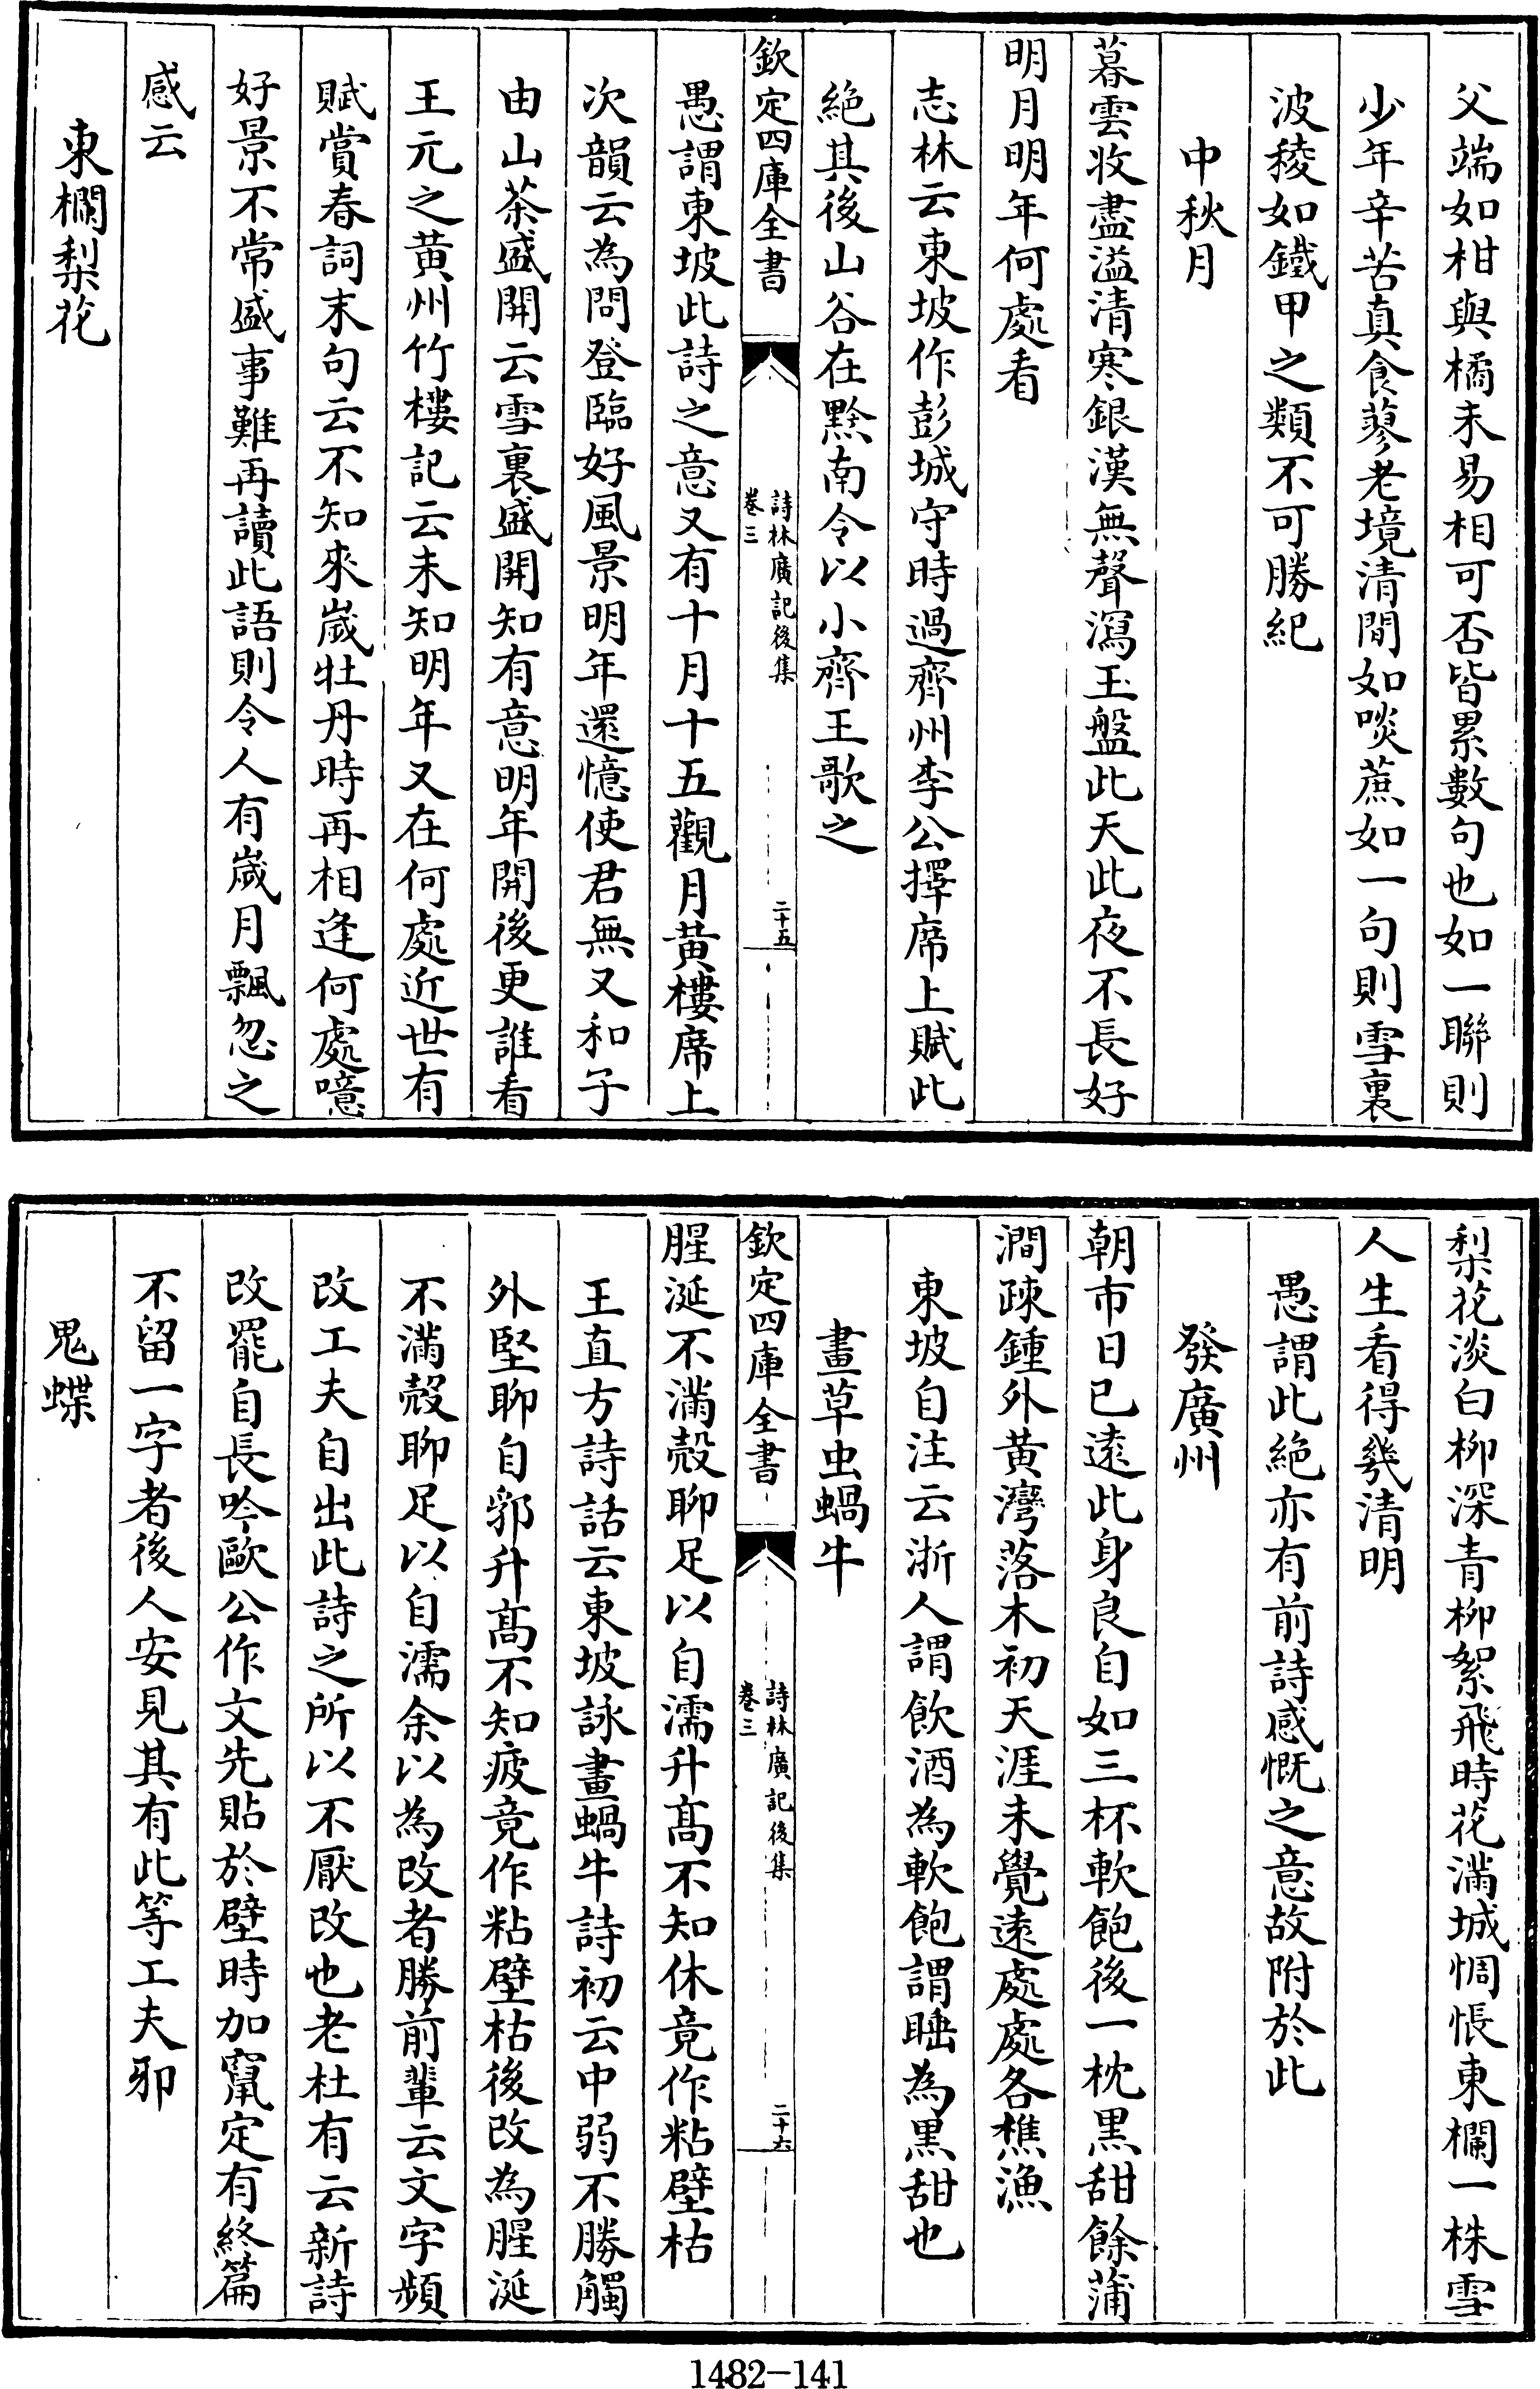 父端如柑與橘未易相可否皆累數句也如一聯則
少年辛苦真食蓼老境清閒如啖蔗如一句則雪裏
波稜如鐵甲之類不可勝紀
中秋月
暮雲收盡溢清寒銀漢無聲瀉玉盤此天此夜不長好
明月明年何處看
志林云東坡作彭城守時過齊州李公擇席上賦此
絶其後山谷在黔南令以小齊王歌之
欽定四庫全書
詩林廣記後集
卷三
二十五
愚謂東坡此詩之意又有十月十五觀月黄樓席上
次韻云為問登臨好風景明年還憶使君無又和子
由山茶盛開云雪裏盛開知有意明年開後更誰看
王元之黄州竹樓記云未知明年又在何處近世有
賦賞春詞末句云不知來嵗牡丹時再相逢何處噫
好景不常盛事難再讀此語則令人有嵗月飄忽之
感云
東欄梨花
梨花淡白柳深青柳絮飛時花滿城惆悵東欄一株雪
人生看得幾清明
愚謂此絶亦有前詩感慨之意故附於此
發廣州
朝市日已逺此身良自如三杯軟飽後一枕黒甜餘蒲
澗疎鍾外黄灣落木初天涯未覺逺處處各樵漁
東坡自注云浙人謂飲酒為軟飽謂睡為黒甜也
畫草虫蝸牛
欽定四庫全書
詩林廣記後集
卷三
二十六
腥涎不滿殻聊足以自濡升髙不知休竟作粘壁枯
王直方詩話云東坡詠畫蝸牛詩初云中弱不勝觸
外堅聊自郛升髙不知疲竟作粘壁枯後改為腥涎
不滿殻聊足以自濡余以為改者勝前輩云文字頻
改工夫自出此詩之所以不厭改也老杜有云新詩
改罷自長吟歐公作文先貼於壁時加竄定有終篇
不留一字者後人安見其有此等工夫邪
鬼蝶
1482-141